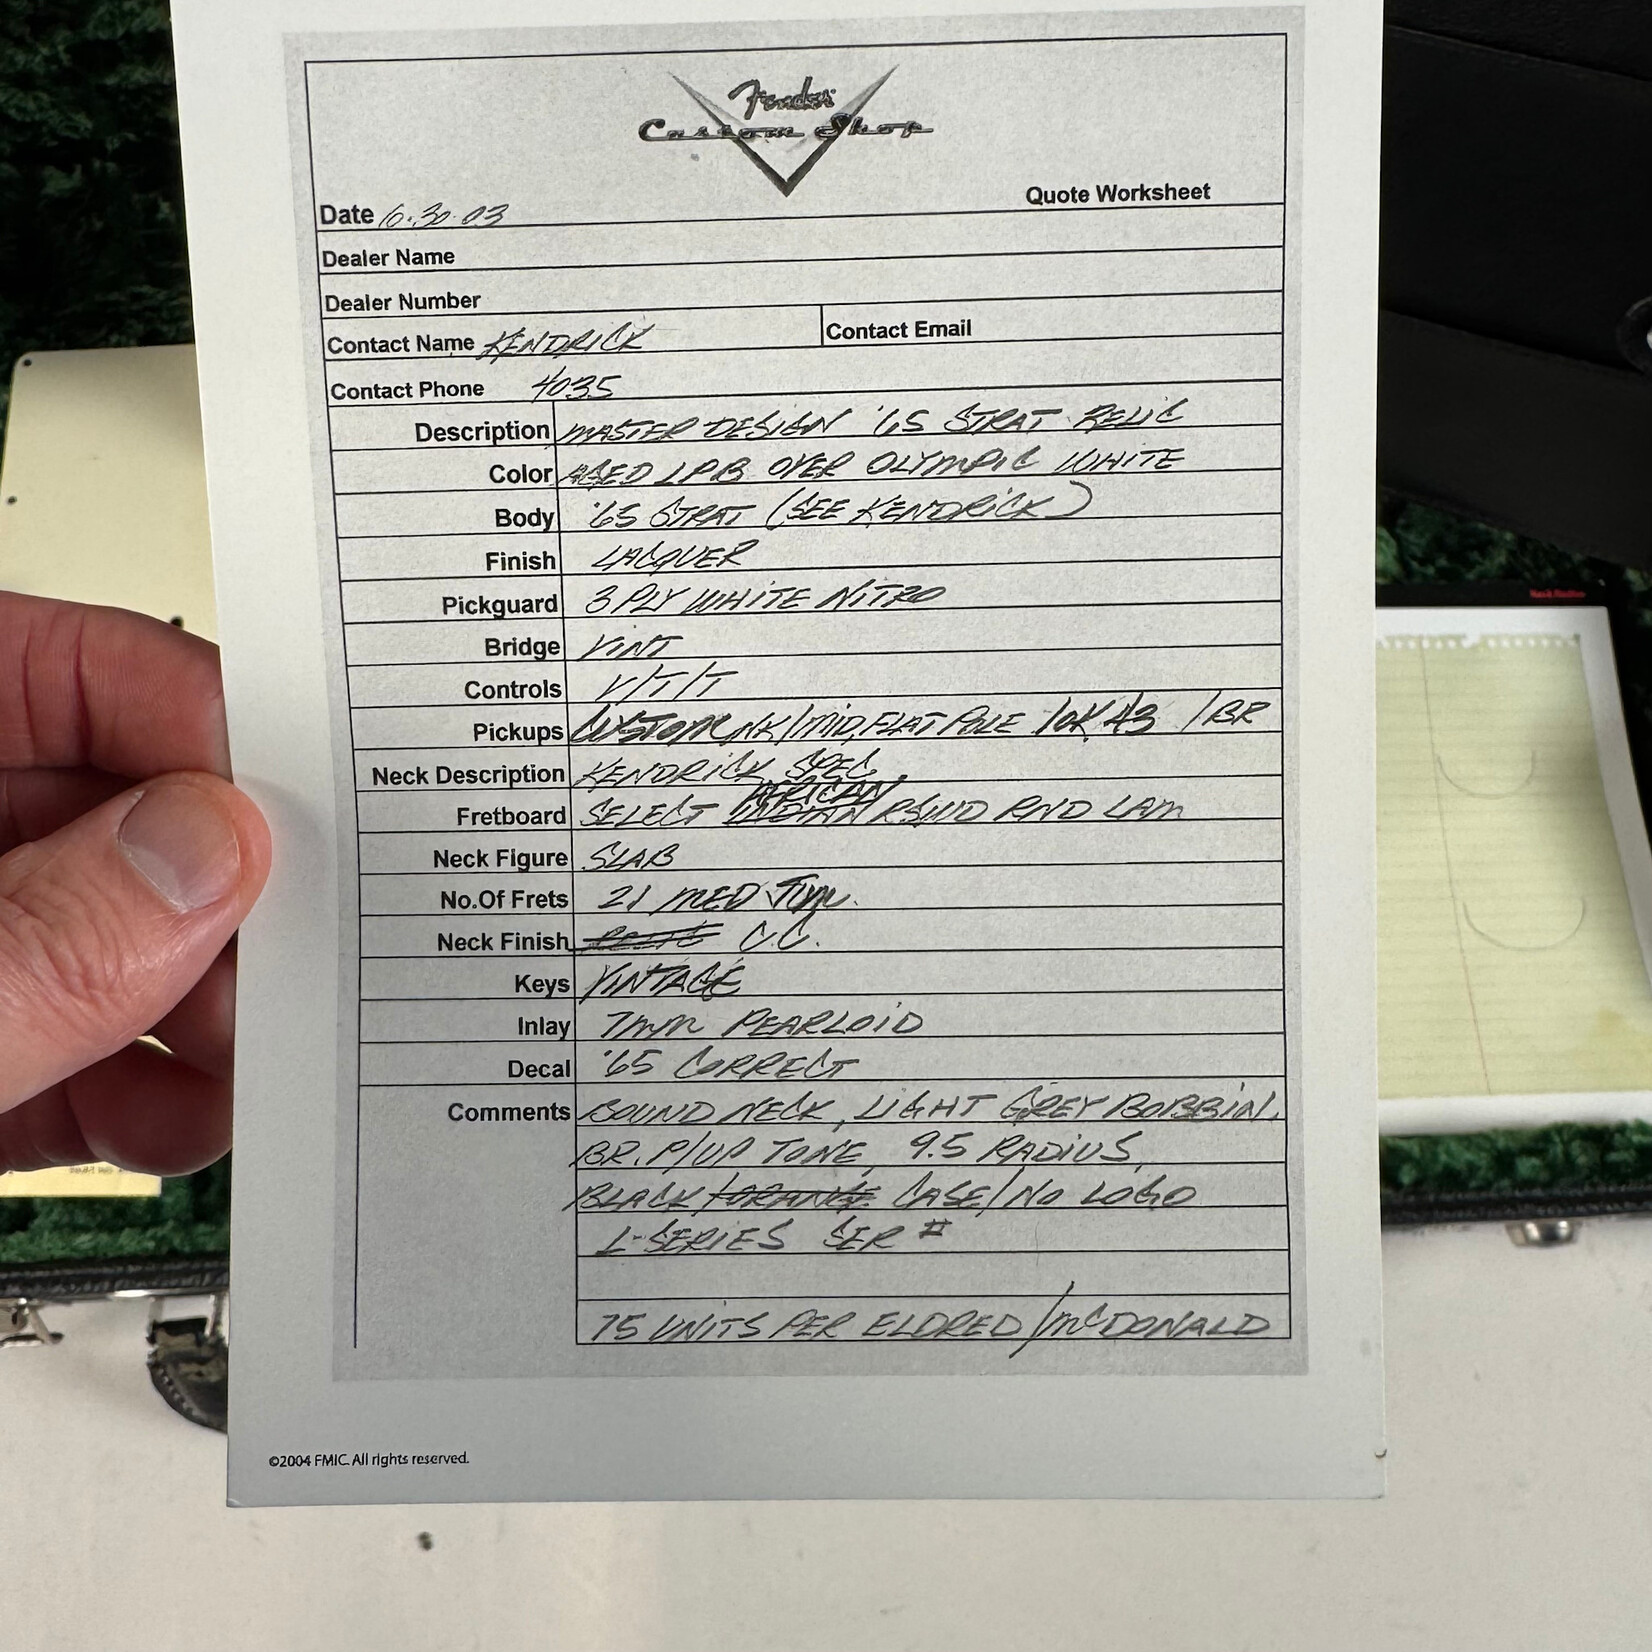 Fender
Custom Shop
Quote Worksheet
Date 6·30·03
Dealer Name
Dealer Number
Contact Name KENDRICK
Contact Email
Contact Phone 4035
Description MASTER DESIGN '65 STRAT RELIC
Color AGED LPB OVER OLYMPIC WHITE
Body '65 STRAT (SEE KENDRICK)
Finish LACQUER
Pickguard 3 PLY WHITE NITRO
Bridge VINT
Controls V/T/T
Pickups CUSTOM NK/MID, FLAT POLE 10K A3 /BR
Neck Description KENDRICK SPEC.
AFRICAN
Fretboard SELECT INDIAN RSWD RND LAM
Neck Figure SLAB
No.Of Frets 21 MED JUM.
Neck Finish C.C.
Keys VINTAGE
Inlay 7mm PEARLOID
Decal '65 CORRECT
Comments BOUND NECK, LIGHT GREY BOBBIN,
BR. P/UP TONE, 9.5 RADIUS,
BLACK/ORANGE CASE/NO LOGO
L-SERIES SER #
75 UNITS PER ELDRED/McDONALD
©2004 FMIC. All rights reserved.